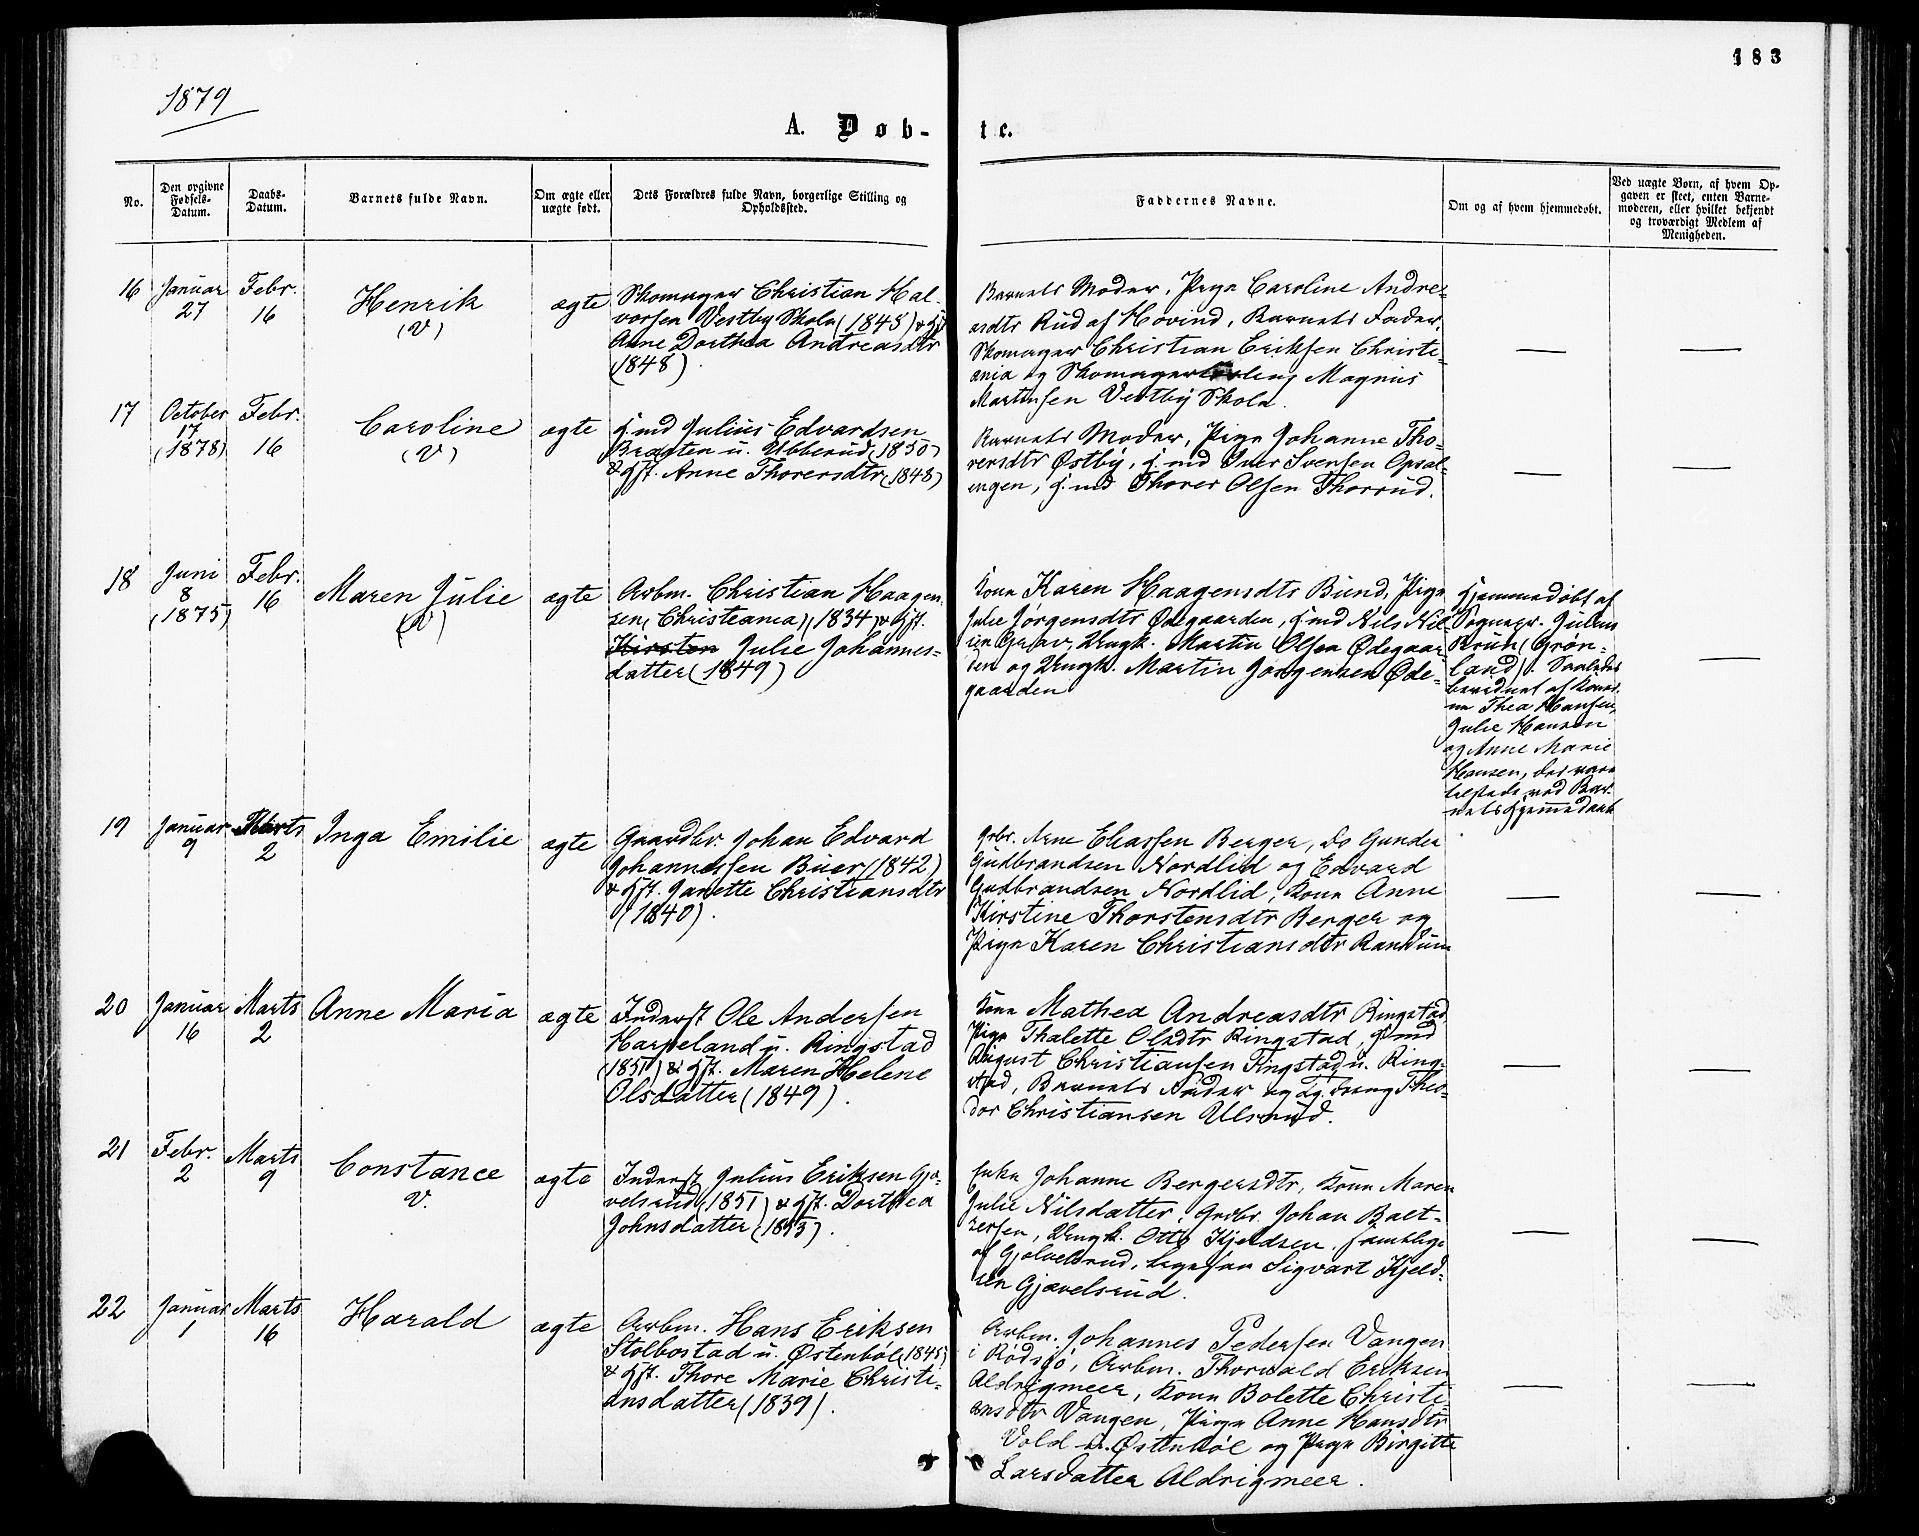 183
1879
A. Døb-
te.
No.
Den opgivne Fødsels-Datum.
Daabs-Datum.
Barnets fulde Navn.
Om ægte eller uægte født.
Dets Forældres fulde Navn, borgerlige Stilling og Opholdssted.
Faddernes Navne.
Om og af hvem hjemmedøbt.
Ved uægte Børn, af hvem Op-
gaven er skeet, enten Barne-
moderen, eller hvilket bekjendt
og troværdigt Medlem af
Menigheden.
16 Januar 27 Febr. 16 Henrik (V) ægte
Skomager Christian Hal-
vorsen Vestby Skole (1845) & Hst.
Anne Dorthea Andreasdtr
(1848).
Barnets Moder, Pige Caroline Andre-
asdtr Rud af Hovind, Barnets Fader,
Skomager Christian Eriksen Christi-
ania og Skomager Magnus
Martinsen Vestby Skole.
17 October 17 (1878) Febr. 16 Caroline (V) ægte
Julius Edvardsen
Braaten u. Ubberud (1850)
& Hst. Anne Thorersdtr (1848)
Barnets Moder, Pige Johanne Tho-
rersdtr Østby, Iver Svensen Opsal-
engen, Thorer Olsen Thorrud.
18 Juni 8 (1875) Febr. 16 Maren Julie (V) ægte
Arbm. Christian Haagen-
sen (Christiania) (1834) & Hst.
Kirsten Julie Johannes-
datter (1849)
Kone Karen Haagensdtr Bund, Pige
Julie Jørgensdtr Ødegaarden, Nils Nil-
sen Grav, Ungk. Martin Olsen Ødegaar-
den og Ungk. Martin Jørgensen Øde-
gaarden
Hjemmedøbt af
Sognepr. Julius
Bruun (Grøn-
land). Saaledes
bevidnet af Koner-
ne Thea Hansen,
Julie Hansen
og Anne Marie
Hansen, der vare
tilstede ved Bar-
nets Hjemmedaab
19 Januar 9 Marts 2 Inga Emilie ægte
Gaardbr. Johan Edvard
Johannessen Buer (1842)
& Hst. Janette Christiansdtr
(1840).
Grbr. Arne Eliassen Berger, Do Gunder
Gudbrandsen Nordlid og Edvard
Gudbrandsen Nordlid, Kone Anne
Kirstine Thorstensdtr Berger og
Pige Karen Christiansdtr
20 Januar 16 Marts 2 Anne Maria ægte
Inderst Ole Andersen
Harpeland u. Ringstad
(1851) & Hst. Maren Helene
Olsdatter (1849).
Kone Mathea Andreasdtr Ringstad,
Pige Thalette Olsdtr Ringstad,
August Christiansen Tingstad u. Ring-
stad, Barnets Fader og Theo-
dor Christiansen Ulsrud.
21 Febr. 2 Marts 9 Constance V. ægte
Inderst Julius Eriksen Gjø-
velsrud (1851) & Hst. Dorthea
Johnsdatter (1853).
Enke Johanne Bergersdtr, Kone Maren
Julie Nilsdatter, Grdbr. Johan Balt-
zersen, Ungk. Otto Kjeldsen samtlige
af Gjølvelsrud, Sigvart Kjeld-
sen Gjævelsrud.
22 Januar 1 Marts 16 Harald ægte
Arbm. Hans Eriksen
Stolbostad u. Østenbøl (1845)
& Hst. Thore Marie Christi-
ansdatter (1839).
Arbm. Johannes Pedersen Vangen
i Rødsjø, Arbm. Thorvald Eriksen
Aldrigmeer, Kone Bolette Christi-
ansdtr Vangen, Pige Anne Hansdtr
Vold u. Østenbøl og Pige Birgitte
Larsdatter Aldrigmeer.